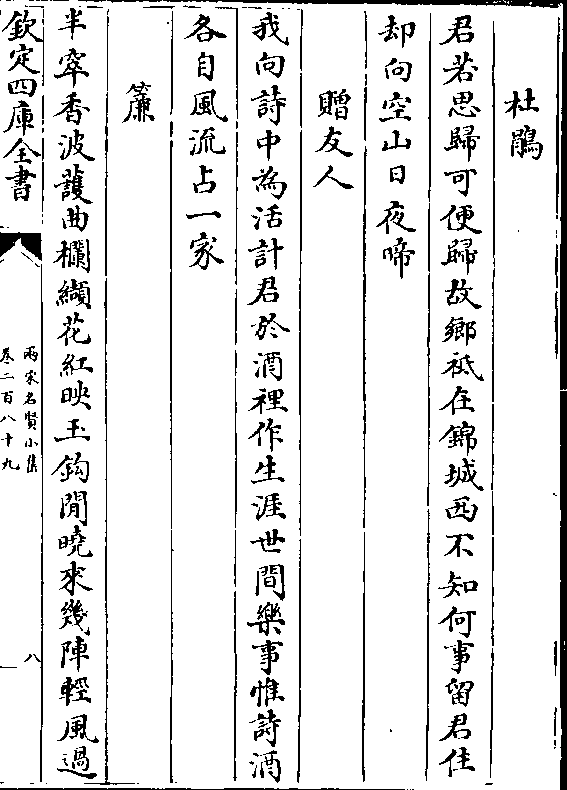 杜鵑
君若思歸可便歸故鄉祗在錦城西不知何事留君住
却向空山日夜啼
贈友人
我向詩中為活計君於酒裡作生涯世間樂事惟詩酒
各自風流占一家
簾
半窣香波䕶曲欄纈花紅映玉鈎閒曉來幾陣輕風過
欽定四庫全書
兩宋名賢小集
卷二百八十九
八